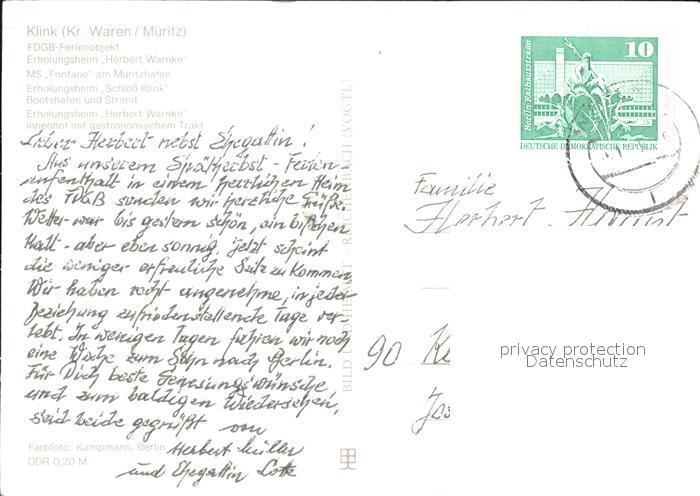 Klink (Kr. Waren / Müritz)
FDGB-Ferienobjekt
Erholungsheim „Herbert Warnke"
MS „Fontane" am Müritzhafen
Erholungsheim „Schloß Klink"
Bootshafen und Strand
Erholungsheim „Herbert Warnke"
Innenhof mit gastronomischem Trakt
Lieber Herbert nebst Ehegattin!
Aus unserem Spätherbst-Ferien-
aufenthalt in einem herrlichen Heim
des FDGB senden wir herzliche Grüße.
Wetter war bis gestern schön, ein bißchen
kalt - aber eben sonnig. Jetzt scheint
die weniger erfreuliche Seite zu kommen.
Wir haben recht angenehme, in jeder
Beziehung zufriedenstellende Tage ver-
lebt. In wenigen Tagen fahren wir noch
eine Woche zum Sohn nach Berlin.
Für Dich beste Genesungswünsche
und zum baldigen Wiedersehen,
seid beide gegrüßt von
Herbert
und Ehegattin Lotte
Farbfoto: Kampmann, Berlin
DDR 0,20 M
BILD UND HEIMAT · REICHENBACH (VOGTL)
10
Berlin, Rathausstraße
DEUTSCHE DEMOKRATISCHE REPUBLIK
Familie
Herbert
90 K
Jos
privacy protection
Datenschutz